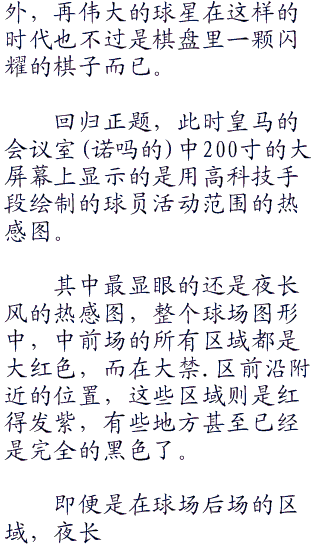 外，再伟大的球星在这样的
时代也不过是棋盘里一颗闪
耀的棋子而已。
回归正题，此时皇马的
会议室(诺吗的)中200寸的大
屏幕上显示的是用高科技手
段绘制的球员活动范围的热
感图。
其中最显眼的还是夜长
风的热感图，整个球场图形
中，中前场的所有区域都是
大红色，而在大禁.区前沿附
近的位置，这些区域则是红
得发紫，有些地方甚至已经
是完全的黑色了。
即便是在球场后场的区
域，夜长